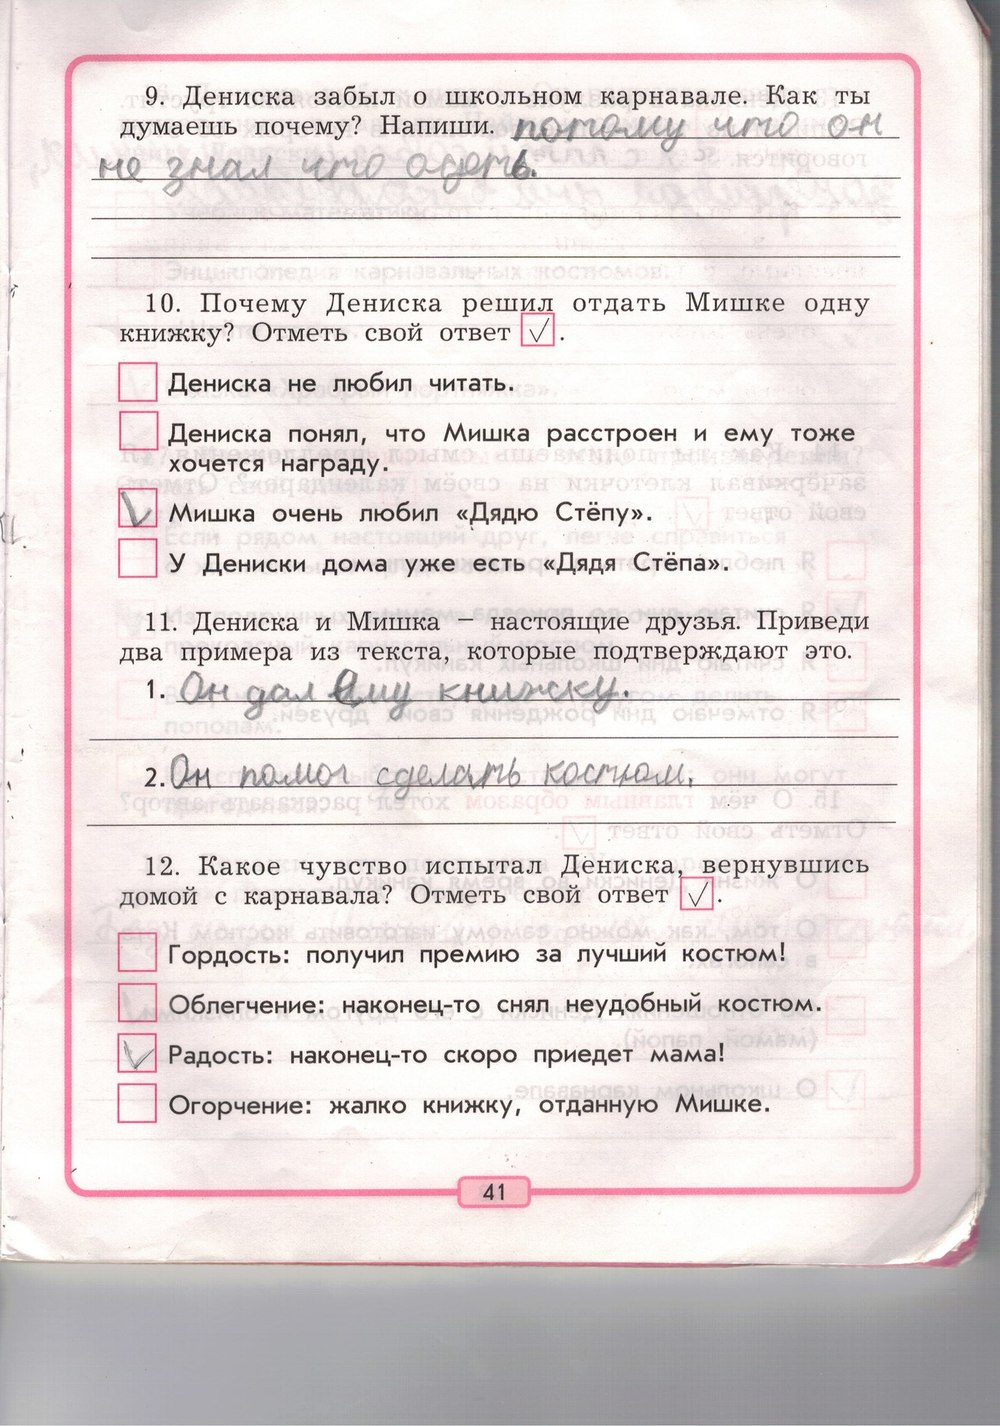 9. Дениска забыл о школьном карнавале. Как ты
думаешь почему? Напиши. потому что он
не знал что одеть.
10. Почему Дениска решил отдать Мишке одну
книжку? Отметь свой ответ ✓.
Дениска не любил читать.
Дениска понял, что Мишка расстроен и ему тоже
хочется награду.
✓ Мишка очень любил «Дядю Стёпу».
У Дениски дома уже есть «Дядя Стёпа».
11. Дениска и Мишка – настоящие друзья. Приведи
два примера из текста, которые подтверждают это.
1. Он дал ему книжку.
2. Он помог сделать костюм.
12. Какое чувство испытал Дениска, вернувшись
домой с карнавала? Отметь свой ответ ✓.
Гордость: получил премию за лучший костюм!
Облегчение: наконец-то снял неудобный костюм.
✓ Радость: наконец-то скоро приедет мама!
Огорчение: жалко книжку, отданную Мишке.
41